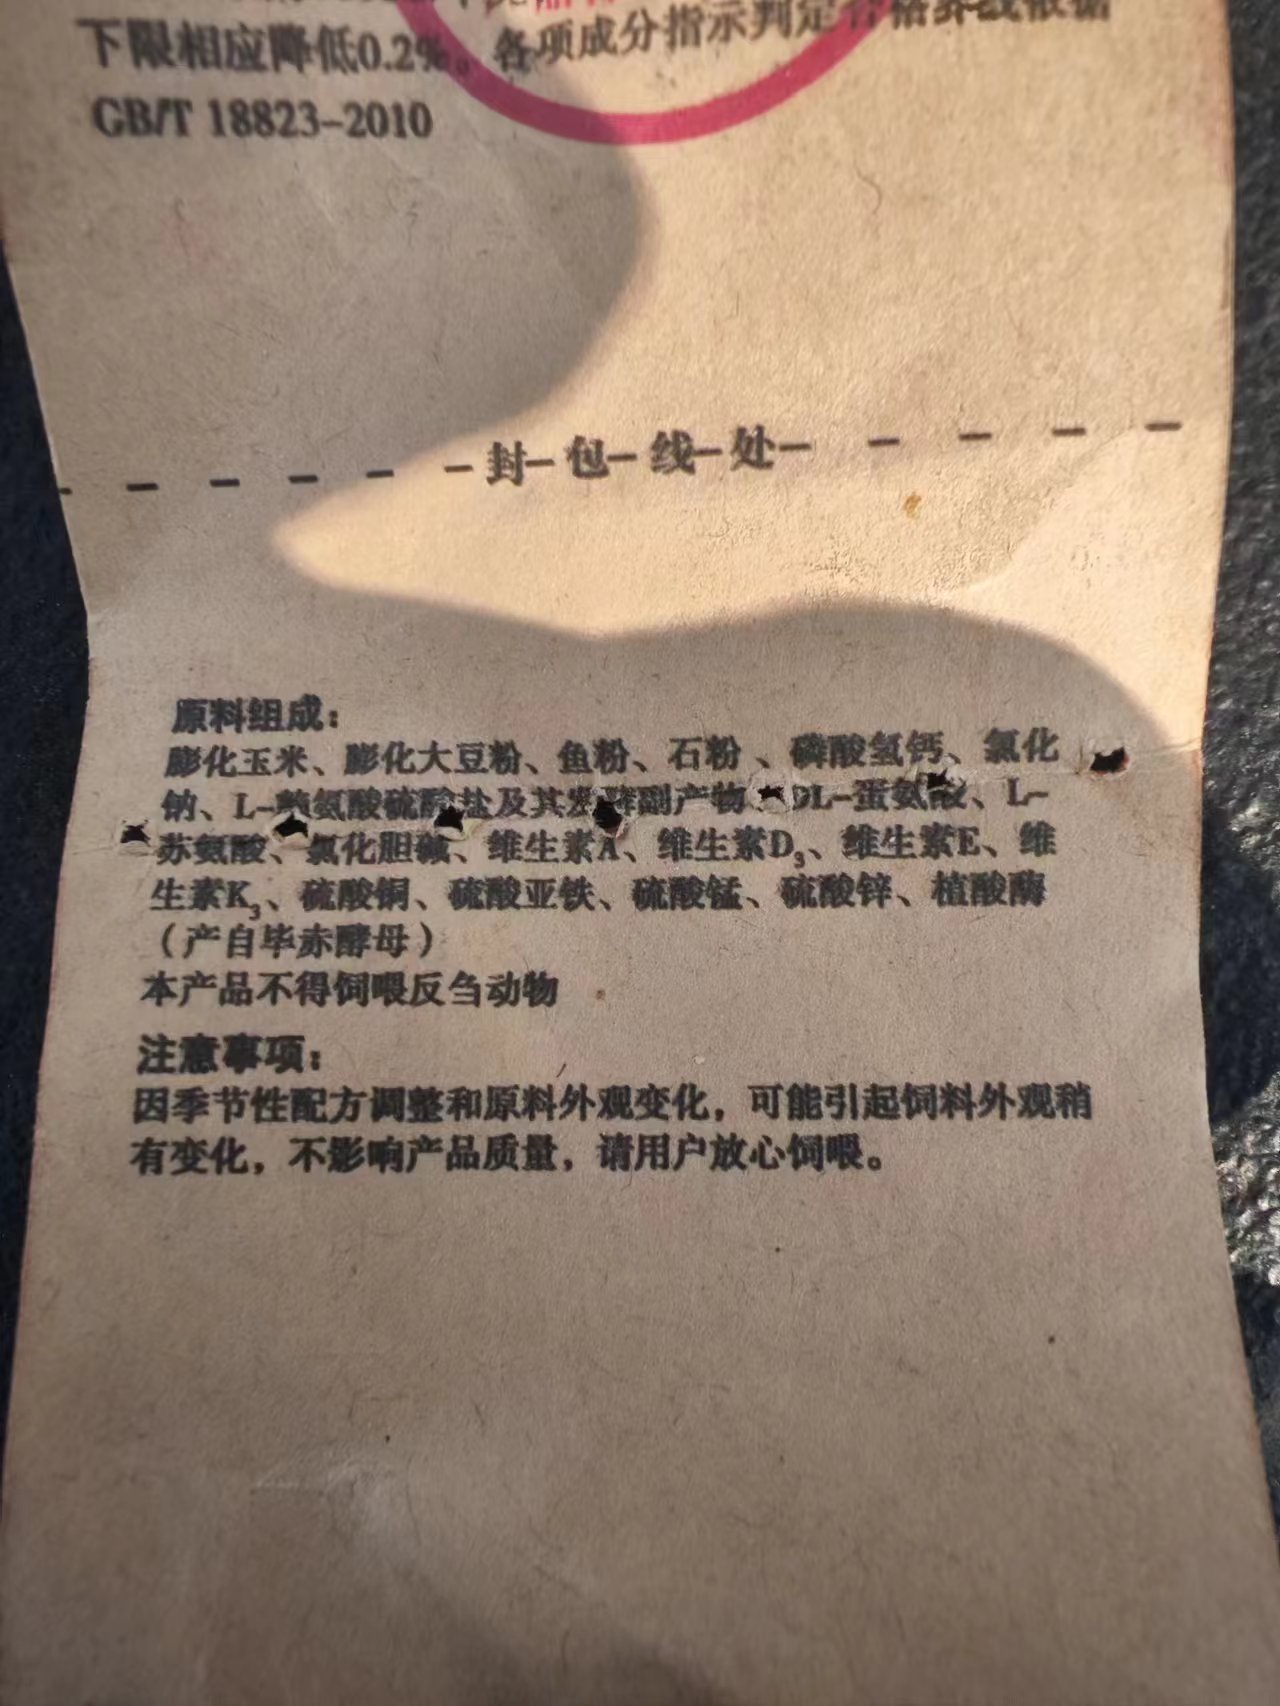 下限相应降低0.2%。各项成分指示判定合格界线依据
GB/T 18823-2010
封包线处
原料组成：
膨化玉米、膨化大豆粉、鱼粉、石粉、磷酸氢钙、氯化
钠、L-赖氨酸硫酸盐及其发酵副产物、DL-蛋氨酸、L-
苏氨酸、氯化胆碱、维生素A、维生素D₃、维生素E、维
生素K₃、硫酸铜、硫酸亚铁、硫酸锰、硫酸锌、植酸酶
（产自毕赤酵母）
本产品不得饲喂反刍动物
注意事项：
因季节性配方调整和原料外观变化，可能引起饲料外观稍
有变化，不影响产品质量，请用户放心饲喂。